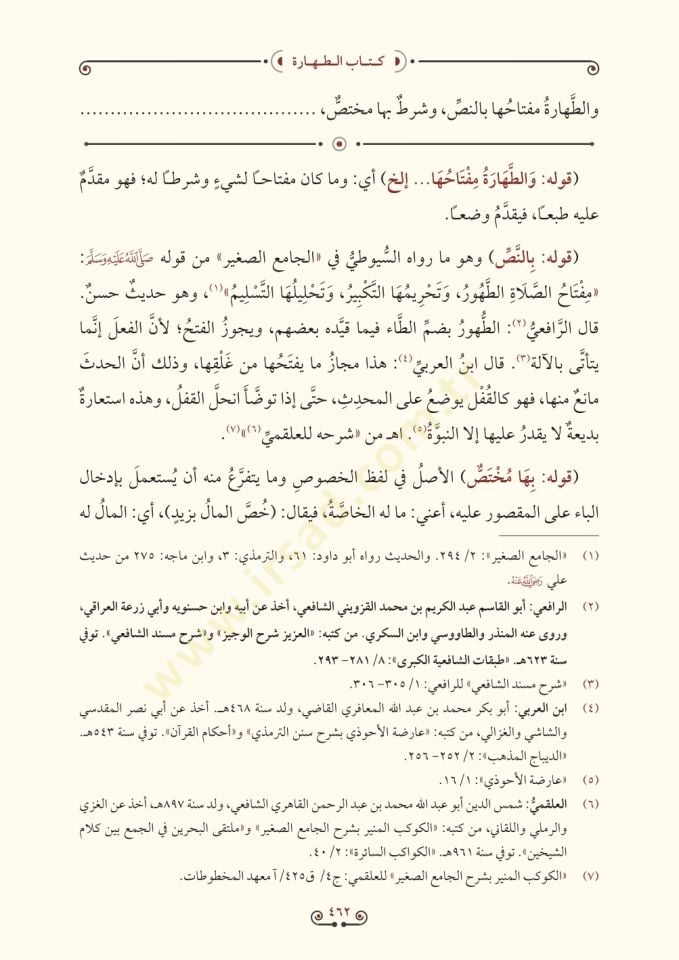 كـتـاب الـطـهـارة
والطَّهارةُ مفتاحُها بالنصِّ، وشرطٌ بها مختصٌّ، .....................................
(قوله: وَالطَّهَارَةُ مِفْتَاحُهَا... إلخ) أي: وما كان مفتاحـًا لشيءٍ وشرطـًا له؛ فهو مقدَّمٌ
عليه طبعـًا، فيقدَّمُ وضعـًا.
(قوله: بِالنَّصِّ) وهو ما رواه السُّيوطيُّ في «الجامع الصغير» من قوله ﷺ:
«مِفْتَاحُ الصَّلَاةِ الطُّهُورُ، وَتَحْرِيمُهَا التَّكْبِيرُ، وَتَحْلِيلُهَا التَّسْلِيمُ»(١)، وهو حديثٌ حسنٌ.
قال الرَّافعيُّ(٢): الطُّهورُ بضمِّ الطَّاء فيما قيَّده بعضهم، ويجوزُ الفتحُ؛ لأنَّ الفعلَ إنَّما
يتأتَّى بالآلة(٣). قال ابنُ العربيِّ(٤): هذا مجازُ ما يفتَحُها من غَلْقِها، وذلك أنَّ الحدثَ
مانعٌ منها، فهو كالقُفْل يوضعُ على المحدِثِ، حتَّى إذا توضَّأَ انحلَّ القفلُ، وهذه استعارةٌ
بديعةٌ لا يقدرُ عليها إلا النبوَّةُ(٥). اهـ من «شرحه للعلقميِّ(٦)»(٧).
(قوله: بِهَا مُخْتَصٌّ) الأصلُ في لفظ الخصوصِ وما يتفرَّعُ منه أن يُستعملَ بإدخال
الباء على المقصور عليه، أعني: ما له الخاصَّةُ، فيقال: (خُصَّ المالُ بزيدٍ)، أي: المالُ له
(١) «الجامع الصغير»: ٢/ ٢٩٤. والحديث رواه أبو داود: ٦١، والترمذي: ٣، وابن ماجه: ٢٧٥ من حديث
علي رَضِيَ اللَّهُ عَنْهُ.
(٢) الرافعي: أبو القاسم عبد الكريم بن محمد القزويني الشافعي، أخذ عن أبيه وابن حسنويه وأبي زرعة العراقي،
وروى عنه المنذر والطاووسي وابن السكري. من كتبه: «العزيز شرح الوجيز» و«شرح مسند الشافعي». توفي
سنة ٦٢٣هـ. «طبقات الشافعية الكبرى»: ٨/ ٢٨١- ٢٩٣.
(٣) «شرح مسند الشافعي» للرافعي: ١/ ٣٠٥- ٣٠٦.
(٤) ابن العربي: أبو بكر محمد بن عبد الله المعافري القاضي، ولد سنة ٤٦٨هـ. أخذ عن أبي نصر المقدسي
والشاشي والغزالي، من كتبه: «عارضة الأحوذي بشرح سنن الترمذي» و«أحكام القرآن». توفي سنة ٥٤٣هـ.
«الديباج المذهب»: ٢/ ٢٥٢- ٢٥٦.
(٥) «عارضة الأحوذي»: ١/ ١٦.
(٦) العلقميُّ: شمس الدين أبو عبد الله محمد بن عبد الرحمن القاهري الشافعي، ولد سنة ٨٩٧هـ، أخذ عن الغزي
والرملي واللقاني، من كتبه: «الكوكب المنير بشرح الجامع الصغير» و«ملتقى البحرين في الجمع بين كلام
الشيخين». توفي سنة ٩٦١هـ. «الكواكب السائرة»: ٢/ ٤٠.
(٧) «الكوكب المنير بشرح الجامع الصغير» للعلقمي: ج٤/ ق٤٢٥/ آ معهد المخطوطات.
٤٦٢
www.irsad.com.tr